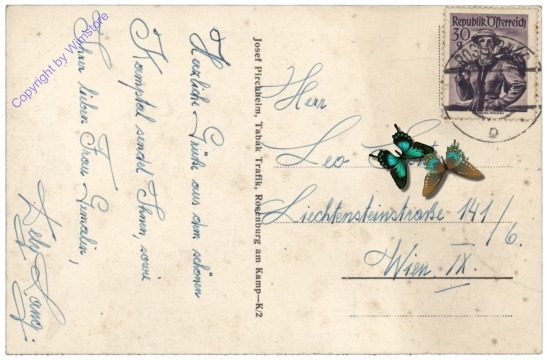 Herzliche Grüße aus dem schönen
Kamptal sendet Ihnen, sowie
Ihrer lieben Frau Gemalin,
Josef Pirchheim, Tabak Trafik, Rosenburg am Kamp—K/2
Republik Österreich
30 g
Herr
Leo
Liechtensteinstraße 141/6.
Wien IX.
Copyright by Wimstore